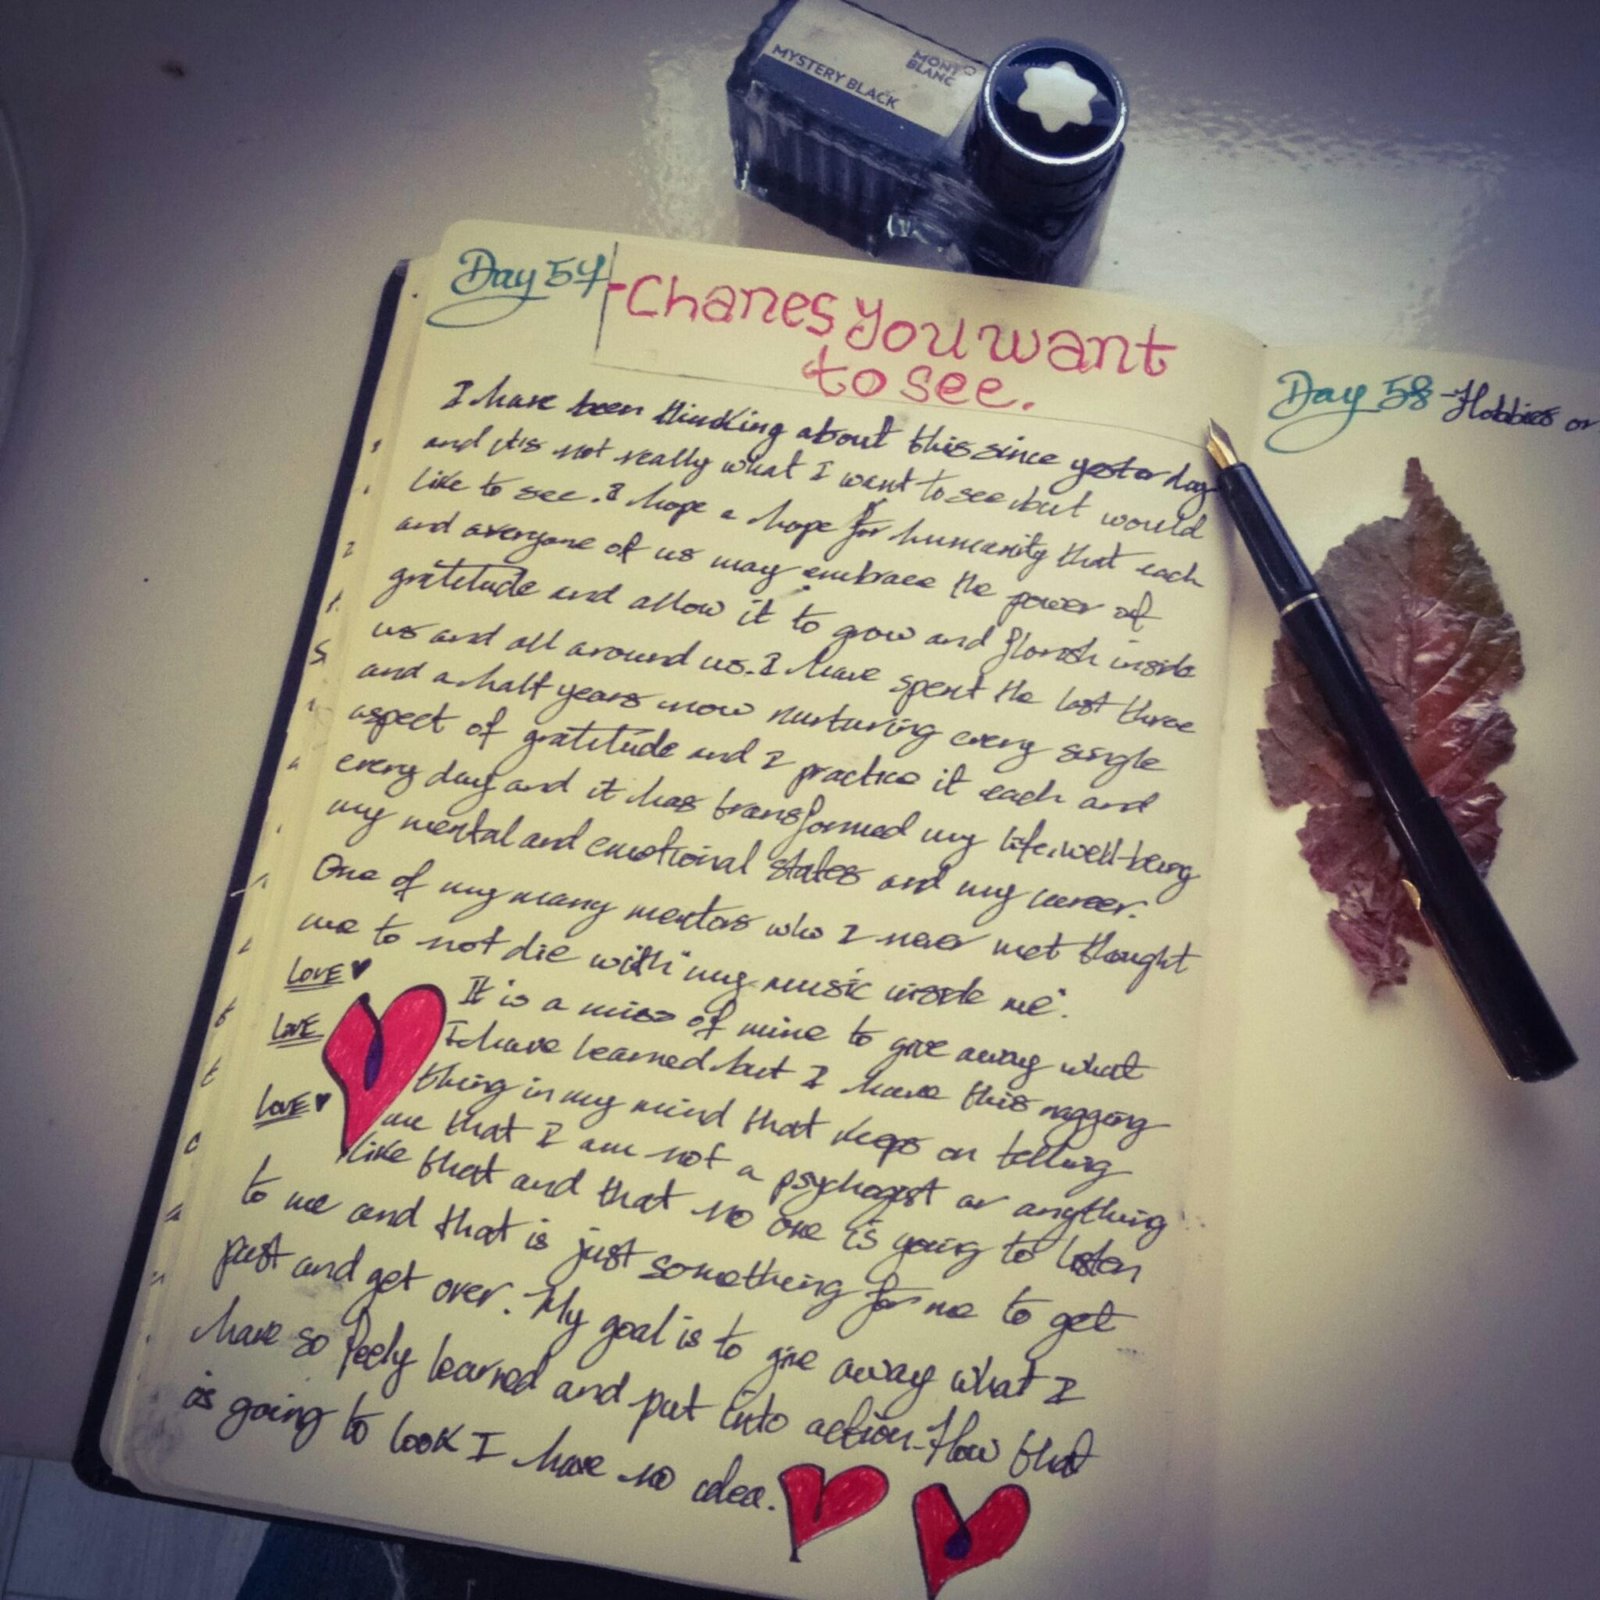 MONT
BLANC
MYSTERY BLACK
Day 57
-Chanes you want
to see.
I have been thinking about this since yesterday
and it's not really what I want to see but would
like to see. I hope a hope for humanity that each
and averyone of us may embrace the power of
gratitude and allow it to grow and florish inside
us and all around us. I have spent the last three
and a half years now nurturing every single
aspect of gratitude and I practice it each and
every day and it has transformed my life, well-being
my mental and emotional states and my career.
One of my many mentors who I never met thought
me to not die with "my music inside me".
LOVE ♥
LOVE
LOVE ♥
It is a of mine to give away what
I have learned but I have this nagging
thing in my mind that keeps on telling
me that I am not a psychogist or anything
like that and that no one is going to listen
to me and that is just something for me to get
past and get over. My goal is to give away what I
have so feely learned and put into action. How that
is going to look I have no idea.
Day 58 - Hobbies or